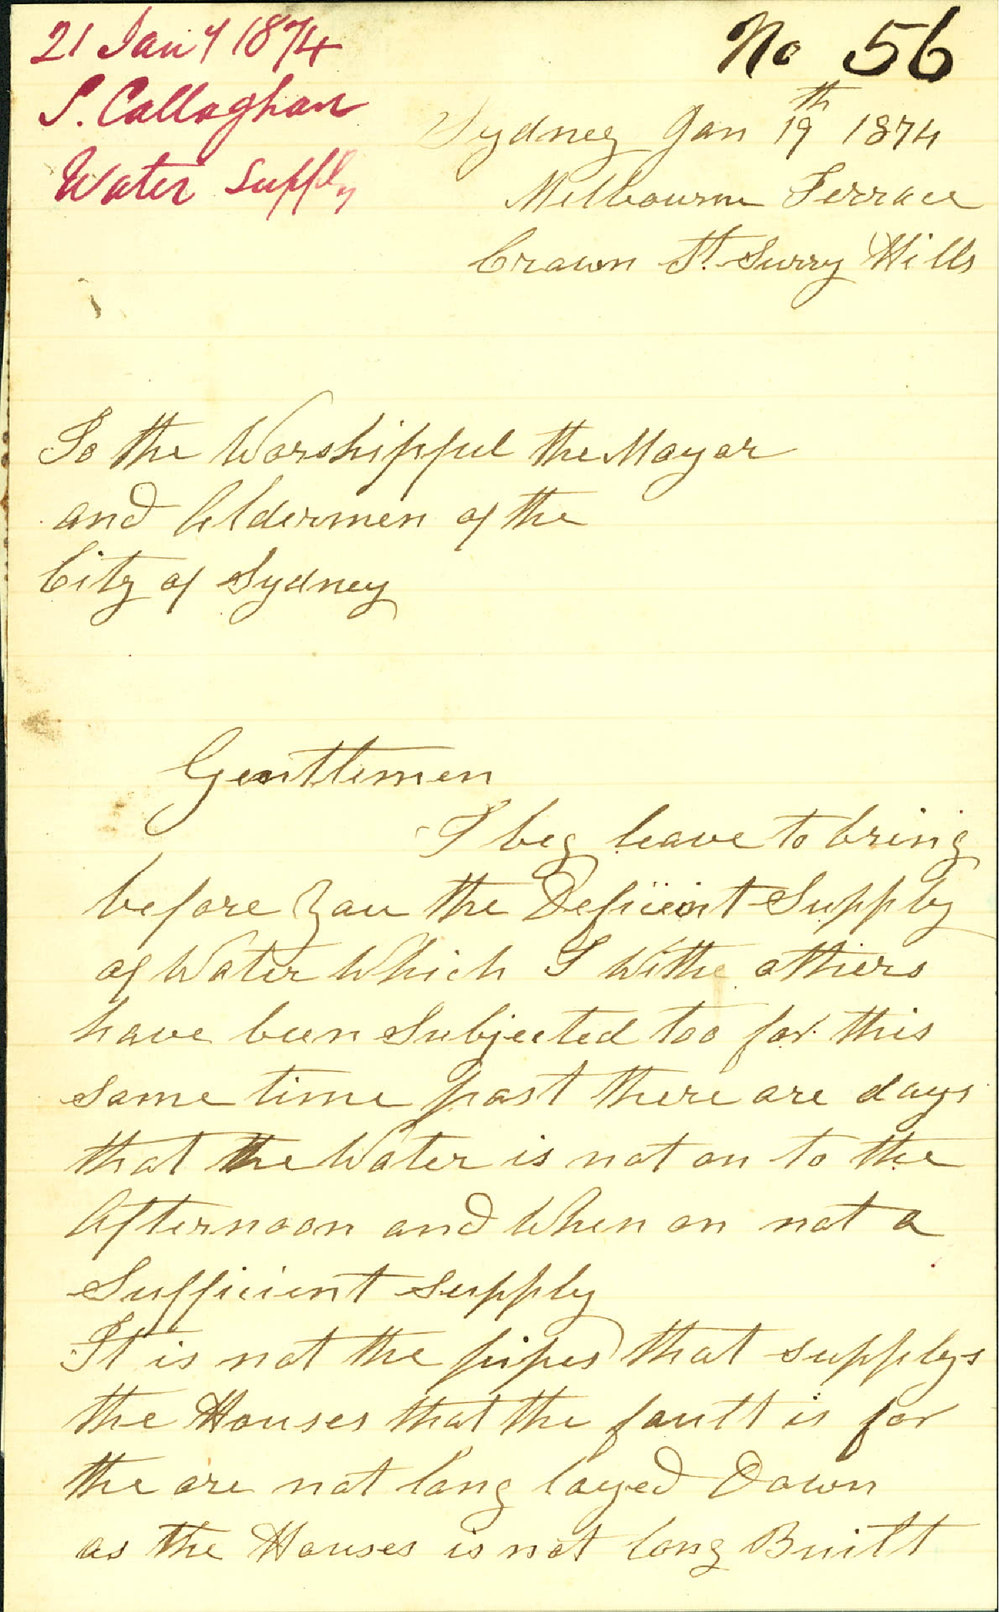 21 Jany 1874
S. Callaghan
Water Supply
No 56
Sydney Jan 19th 1874
Melbourne Terrace
Crown St. Surry Hills
To the Worshipful the Mayor
and Aldermen of the
City of Sydney
Gentlemen
I beg leave to bring
before you the Deficient Supply
of Water Which I Withe others
have been Subjected too for this
some time past there are days
that the Water is not on to the
Afternoon and When on not a
Sufficient supply
It is not the pipes that supplys
the Houses that the fault is for
the are not long layed Down
as the Houses is not long Built